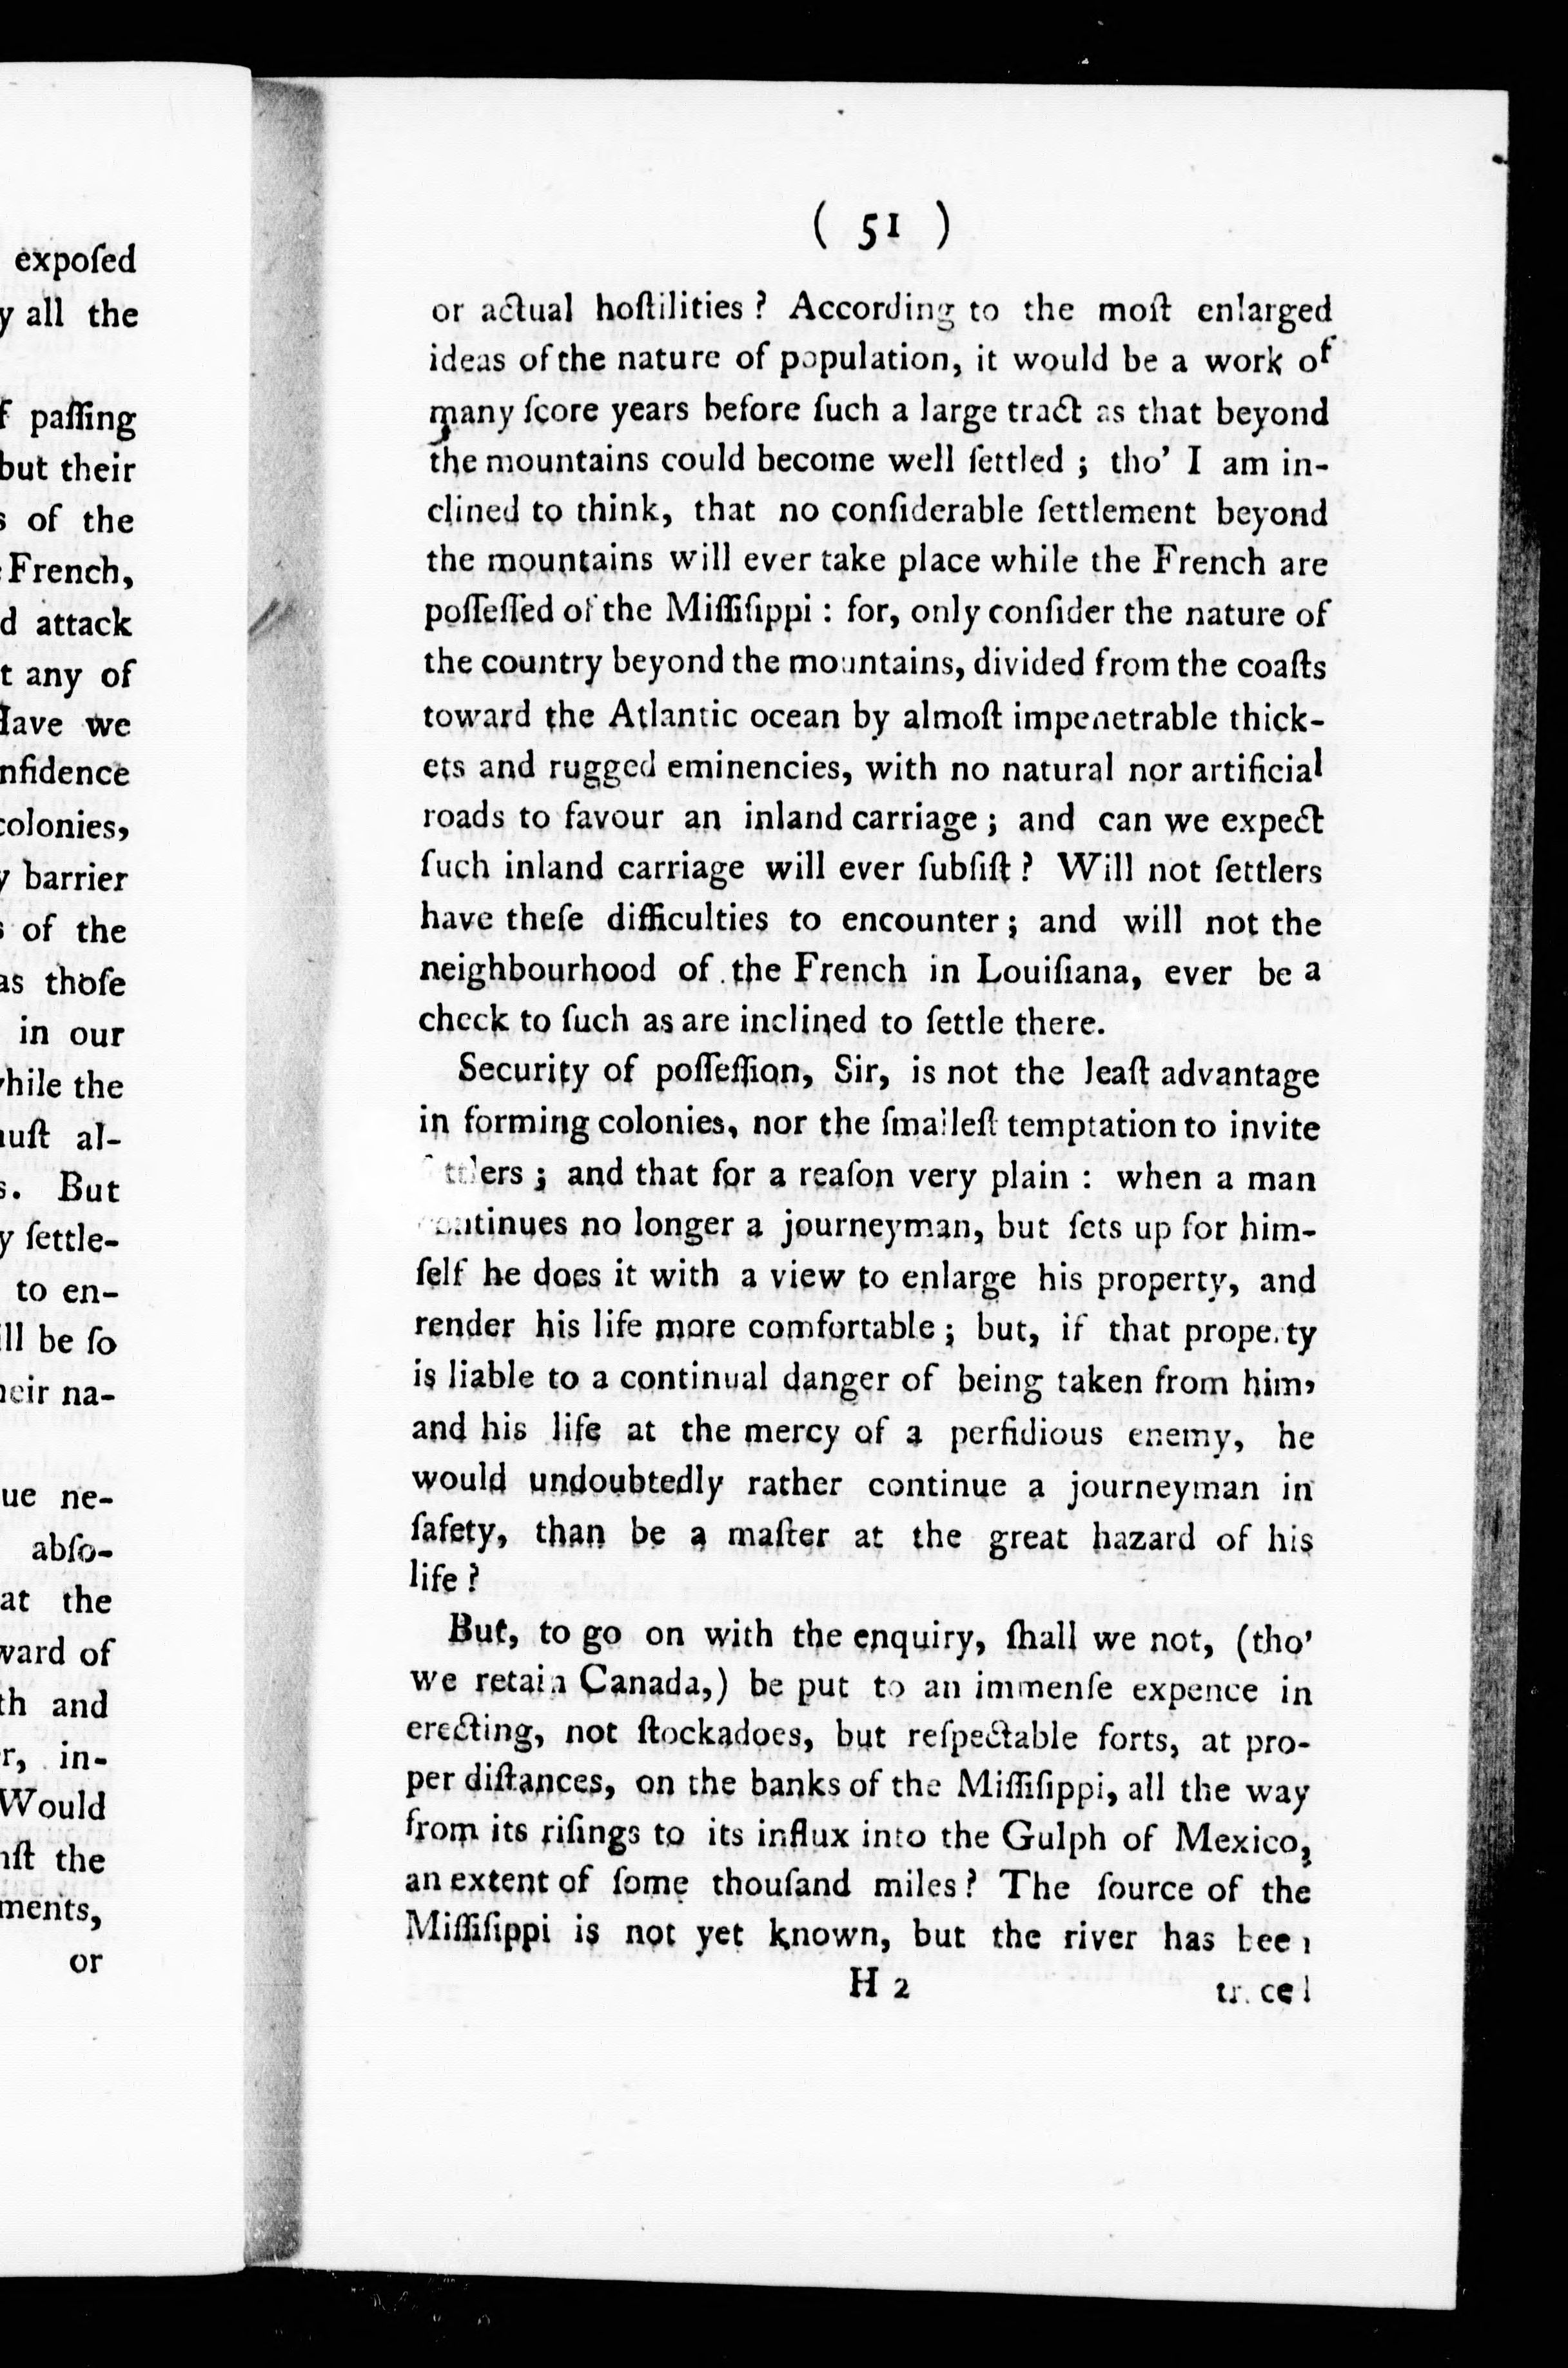 expoſed
y all the
f paſſing
but their
s of the
French,
d attack
t any of
Have we
nfidence
colonies,
y barrier
s of the
as thoſe
in our
while the
muſt al-
s. But
y ſettle-
to en-
ill be ſo
heir na-
ue ne-
abſo-
at the
ward of
th and
r, in-
Would
nſt the
ments,
or
( 51 )
or actual hoſtilities ? According to the moſt enlarged
ideas of the nature of population, it would be a work of
many ſcore years before ſuch a large tract as that beyond
the mountains could become well ſettled ; tho' I am in-
clined to think, that no conſiderable ſettlement beyond
the mountains will ever take place while the French are
poſſeſſed of the Miſſiſippi : for, only conſider the nature of
the country beyond the mountains, divided from the coaſts
toward the Atlantic ocean by almoſt impenetrable thick-
ets and rugged eminencies, with no natural nor artificial
roads to favour an inland carriage ; and can we expect
ſuch inland carriage will ever ſubſiſt ? Will not ſettlers
have theſe difficulties to encounter ; and will not the
neighbourhood of the French in Louiſiana, ever be a
check to ſuch as are inclined to ſettle there.
Security of poſſeſſion, Sir, is not the leaſt advantage
in forming colonies, nor the ſmalleſt temptation to invite
ſettlers ; and that for a reaſon very plain : when a man
continues no longer a journeyman, but ſets up for him-
ſelf he does it with a view to enlarge his property, and
render his life more comfortable ; but, if that property
is liable to a continual danger of being taken from him,
and his life at the mercy of a perfidious enemy, he
would undoubtedly rather continue a journeyman in
ſafety, than be a maſter at the great hazard of his
life ?
But, to go on with the enquiry, ſhall we not, (tho'
we retain Canada,) be put to an immenſe expence in
erecting, not ſtockadoes, but reſpectable forts, at pro-
per diſtances, on the banks of the Miſſiſippi, all the way
from its riſings to its influx into the Gulph of Mexico,
an extent of ſome thouſand miles ? The ſource of the
Miſſiſippi is not yet known, but the river has been
H 2 traced